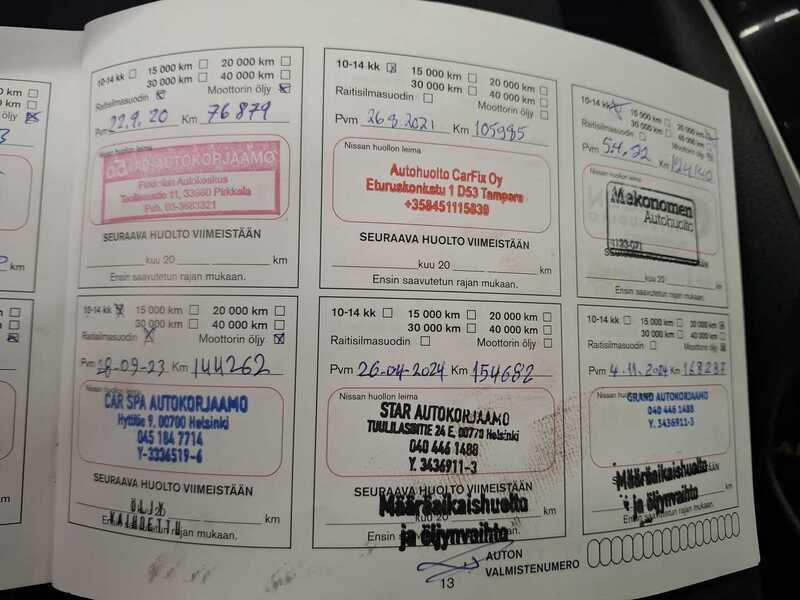 10-14 kk 15 000 km 20 000 km
30 000 km 40 000 km
Raitisilmasuodin Moottorin öljy
Pvm 22.9.20 Km 76879
Nissan huollon leima
AD AUTOKORJAAMO
Pirkkalan Autokeskus
Teollisuustie 11, 33960 Pirkkala
Puh. 03-3683321
SEURAAVA HUOLTO VIIMEISTÄÄN
kuu 20 km
Ensin saavutetun rajan mukaan.
10-14 kk 15 000 km 20 000 km
30 000 km 40 000 km
Raitisilmasuodin Moottorin öljy
Pvm 26.8.2021 Km 105985
Nissan huollon leima
Autohuolto CarFix Oy
Eturuskonkatu 1 D53 Tampere
+358451115839
SEURAAVA HUOLTO VIIMEISTÄÄN
kuu 20 km
Ensin saavutetun rajan mukaan.
10-14 kk 15 000 km 20 000 km
30 000 km 40 000 km
Raitisilmasuodin Moottorin öljy
Pvm 5.4.22 Km 124140
Nissan huollon leima
Mekonomen
Autohuolto
kuu 20 km
Ensin saavutetun rajan mukaan.
10-14 kk 15 000 km 20 000 km
30 000 km 40 000 km
Raitisilmasuodin Moottorin öljy
Pvm 28-09-23 Km 144262
Nissan huollon leima
CAR SPA AUTOKORJAAMO
Hyttitie 9, 00700 Helsinki
045 184 7714
Y-3336519-6
SEURAAVA HUOLTO VIIMEISTÄÄN
ÖLJY
kuu 20 km
VAIHDETTU
Ensin saavutetun rajan mukaan.
10-14 kk 15 000 km 20 000 km
30 000 km 40 000 km
Raitisilmasuodin Moottorin öljy
Pvm 26-04-2024 Km 154682
Nissan huollon leima
STAR AUTOKORJAAMO
TUULILASINTIE 24 E, 00770 Helsinki
040 446 1488
Y. 3436911-3
SEURAAVA HUOLTO VIIMEISTÄÄN
Määräaikaishuolto
kuu 20 km
ja öljynvaihto
Ensin saavutetun rajan mukaan.
10-14 kk 15 000 km 20 000 km
30 000 km 40 000 km
Raitisilmasuodin Moottorin öljy
Pvm 4.11.2024 Km
Nissan huollon leima
GRAND AUTOKORJAAMO
040 446 1488
Y. 3436911-3
SEURAAVA HUOLTO VIIMEISTÄÄN
Määräaikaishuolto
ja öljynvaihto
km
Ensin saavutetun rajan mukaan.
AUTON
VALMISTENUMERO
13